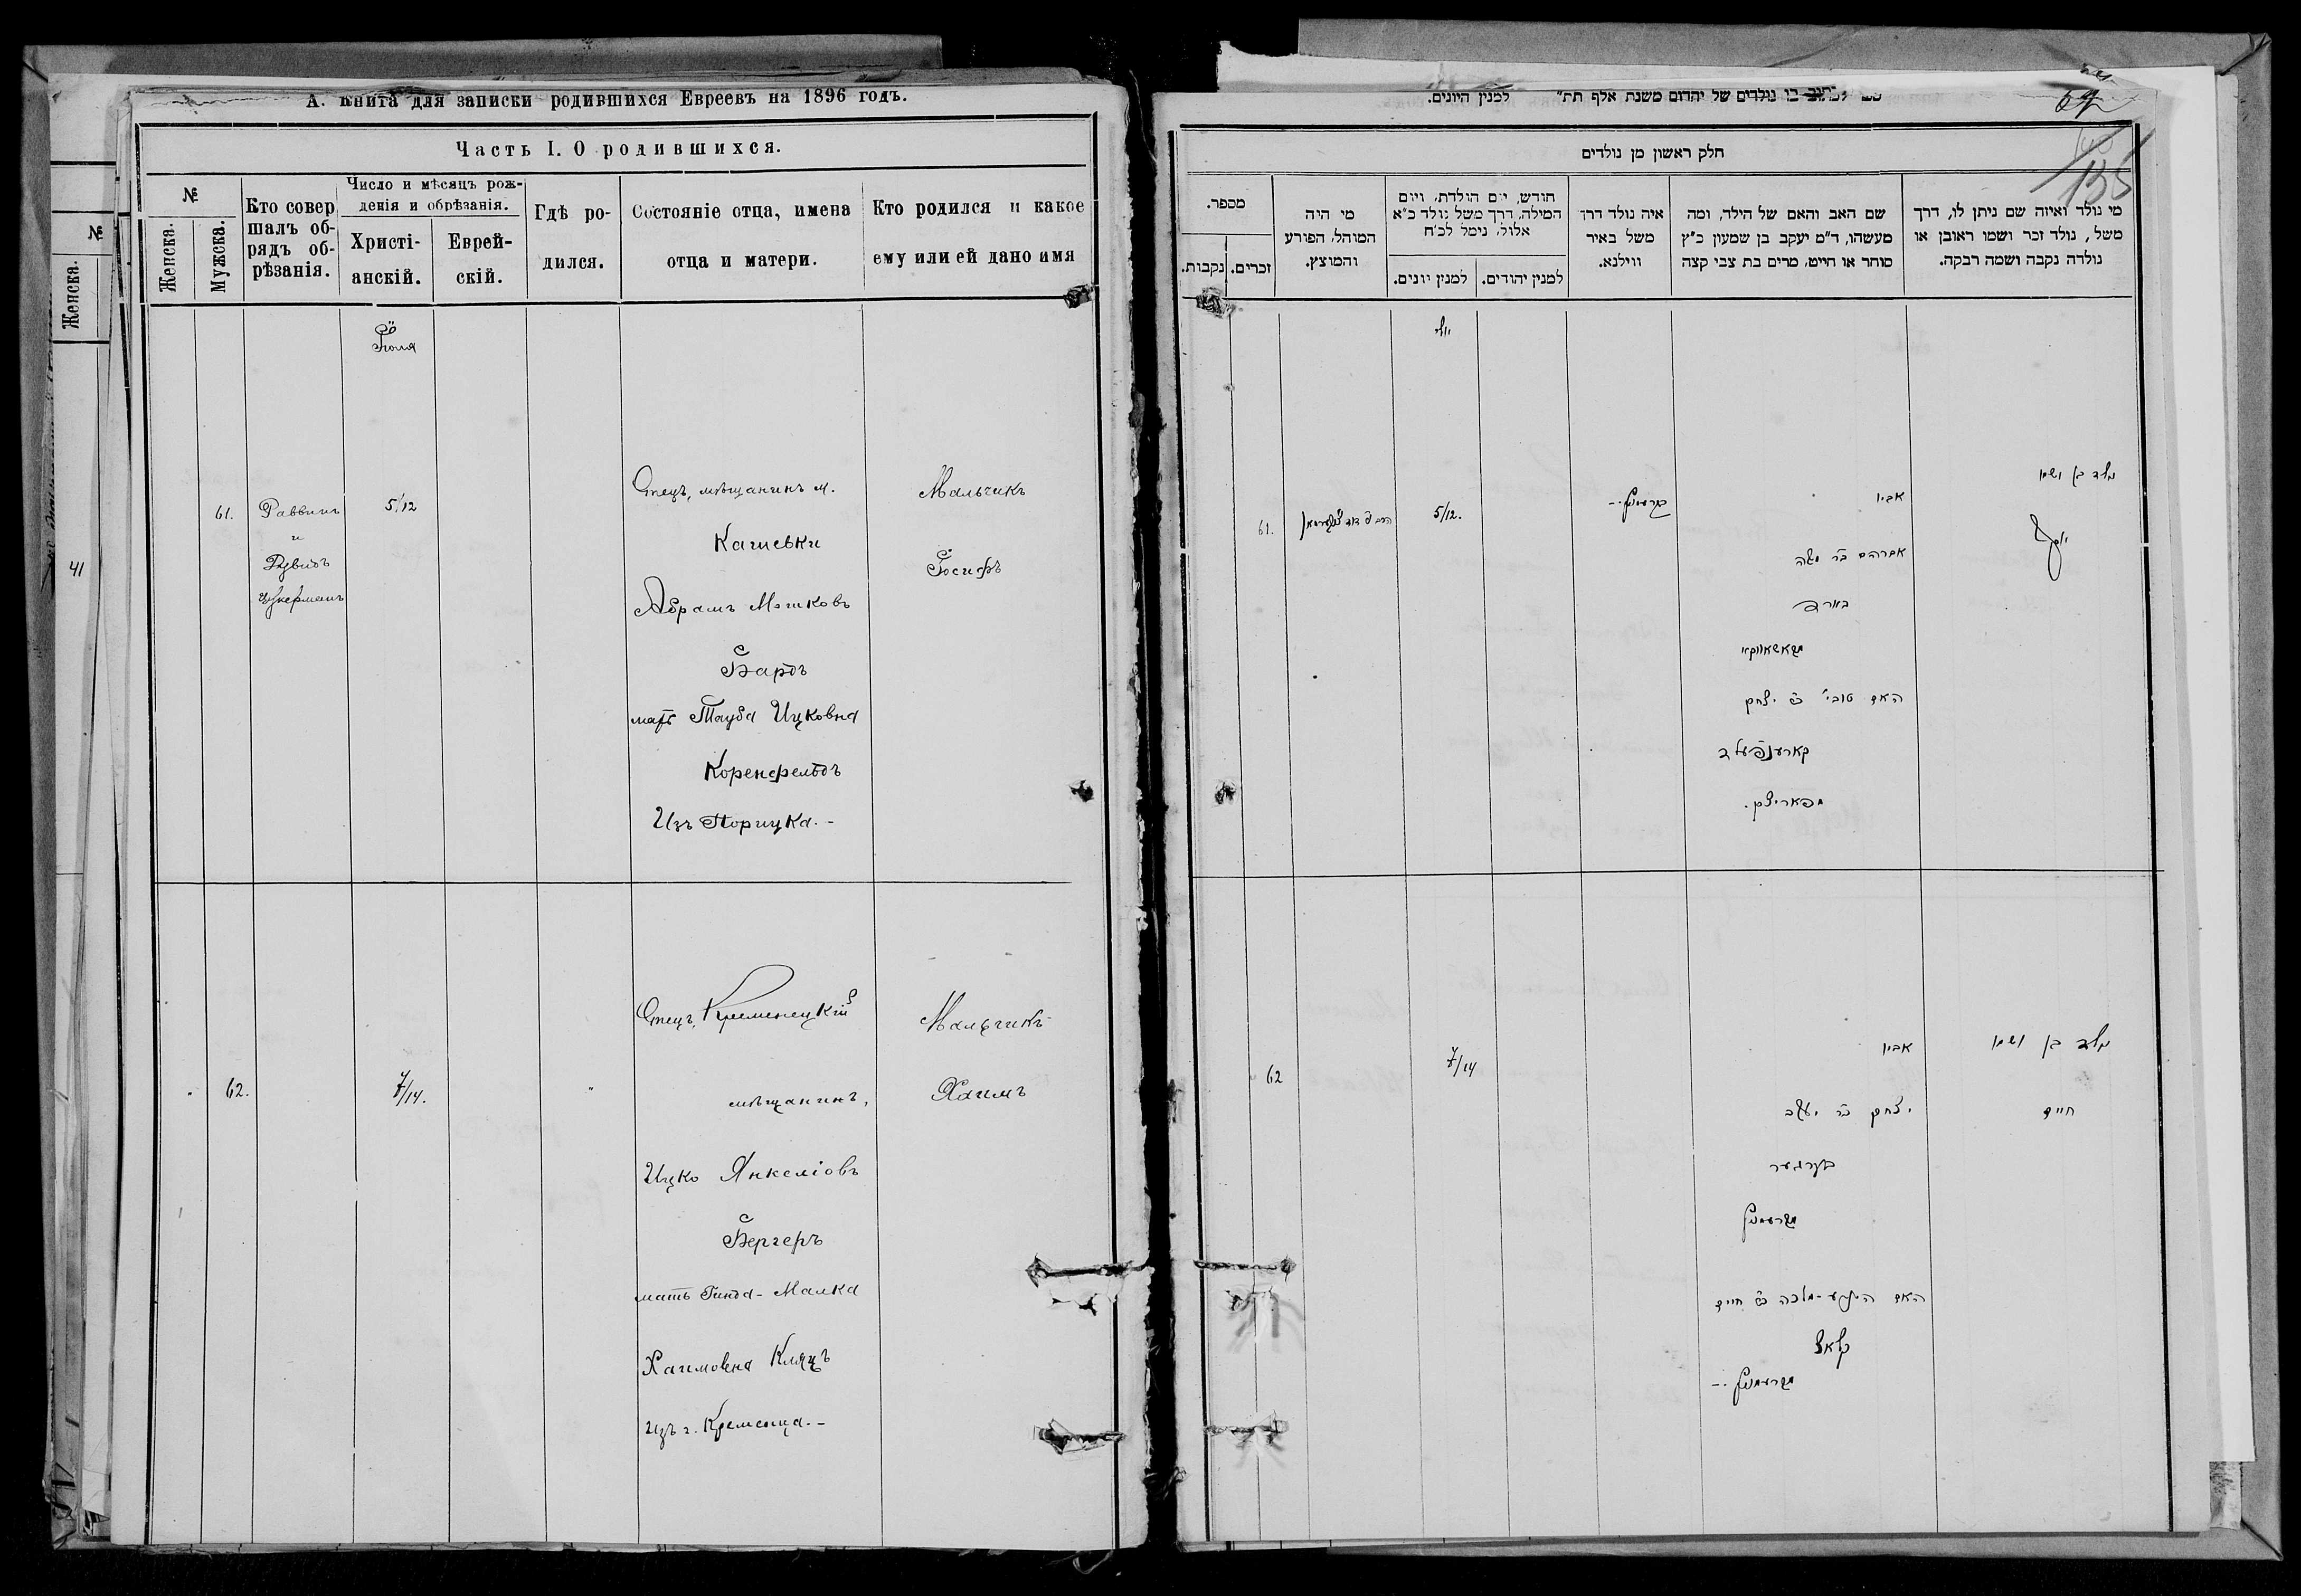 А. Книга для записки родившихся Евреевъ на 1896 годъ.
Часть I. О родившихся.
№
Женска.
Мужска.
Кто совер
шалъ об-
рядъ об-
рѣзанія.
Число и мѣсяцъ рож-
денія и обрѣзанія.
Христі-
анскій.
Еврей-
скій.
Гдѣ ро-
дился.
Состояніе отца, имена
отца и матери.
Кто родился и какое
ему или ей дано имя
Іюля
61.
Раввинъ
и
Дувидъ
Цукерманъ
5/12
Отецъ, мѣщанинъ м.
Катевки
Абрамъ Мошковъ
Бардъ
мать Тауба Ицковна
Коренфельдъ
Изъ Порицка.-
Мальчикъ
Іосифъ
62.
7/14.
Отецъ, Кременецкій
мѣщанинъ,
Ицко Янкеліовъ
Бергеръ
мать Гинда-Малка
Хаимовна Кляцъ
изъ г. Кременца.-
Мальчикъ
Хаимъ
№
Женска.
41
נולדים של יהדום משנת אלף תת"
למנין היונים.
חלק ראשון מן נולדים
מספר.
נקבות.
זכרים.
מי היה
המוהל, הפורע
והמוצץ.
חודש, יום הולדת, ויום
המילה, דרך משל נולד כ"א
אלול, נימל לכ"ח
למנין יונים.
למנין יהודים.
איה נולד דרך
משל באיר
ווילנא.
שם האב והאם של הילד, ומה
מעשהו, ד"מ יעקב בן שמעון כ"ץ
סוחר או חייט, מרים בת צבי קצה
מי נולד ואיזה שם ניתן לו, דרך
משל, נולד זכר ושמו ראובן או
נולדה נקבה ושמה רבקה.
135
יולי
61.
5/12.
קרעמניץ.-
אביו
אברהם בר משה
בארד
האם טובי' בת יצחק
קארענפעלד
מפאריצק.
נולד בן ושמו
יוסף
62
7/14
אביו
יצחק בר יעקב
בערגער
מקרעמניץ
האם הינדע-מלכה בת חיים
קלאץ
מקרעמניץ.-
נולד בן ושמו
חיים